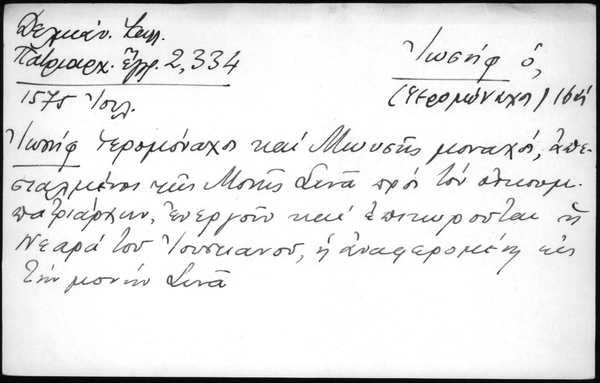 Δελικάν. Καλλ.
Πατριαρχ. ἔγγρ. 2,334
1575 Ἰουλ.
Ἰωσήφ ὁ,
(Ἱερομόναχος) 16ος
Ἰωσήφ Ἱερομόναχος καί Μωυσῆς μοναχός, ἀπε-
σταλμένοι τῆς Μονῆς Σινᾶ πρός τόν οἰκουμ.
πατριάρχην, ἐνεργοῦν καί ἐπικυροῦται ἡ
Νεαρά τοῦ Ἰουστινιανοῦ, ἡ ἀναφερομένη εἰς
τήν μονήν Σινᾶ